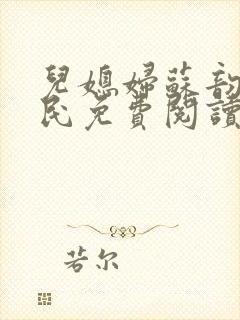 兒媳婦蘇韵
民免費閱讀
若尔